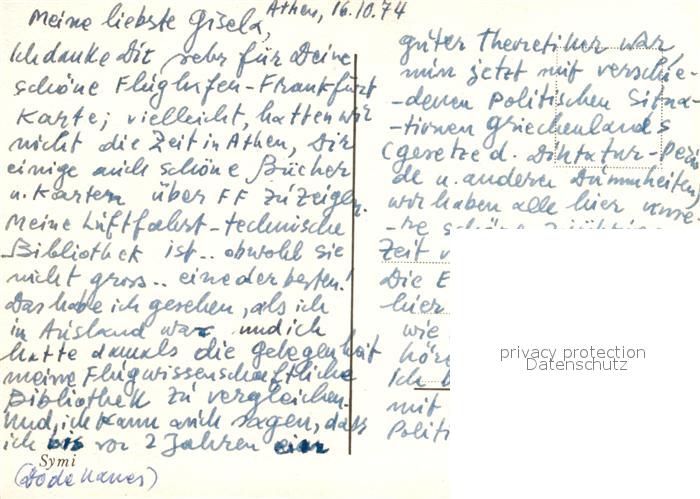 Athen, 16.10.74
Meine liebste Gisela,
Ich danke Dir sehr für Deine
schöne Flughafen-Frankfurt
Karte; vielleicht, hatten wir
nicht die Zeit in Athen, Dir
einige auch schöne Bücher
u. Karten über FF zu zeigen.
Meine Luftfahrt-technische
Bibliothek ist.. obwohl sie
nicht gross.. eine der besten!
Das habe ich gesehen, als ich
in Ausland war und ich
hatte damals die gelegenheit
meine Flugwissenschaftliche
Bibliothek zu vergleichen.
Und, ich kann auch sagen, dass
ich bis vor 2 Jahren ein
Symi
(Dodekanes)
guter Theoretiker war,
nun jetzt mit verschie-
-denen Politischen Situa-
-tionen Griechenlands
(gesetze d. Diktatur-Perio
de u. anderen Dummheiten)
wir haben alle hier unse-
-re schöne
Zeit
Die E
hier
wie
höre
Ich
mit
Politi
privacy protection
Datenschutz